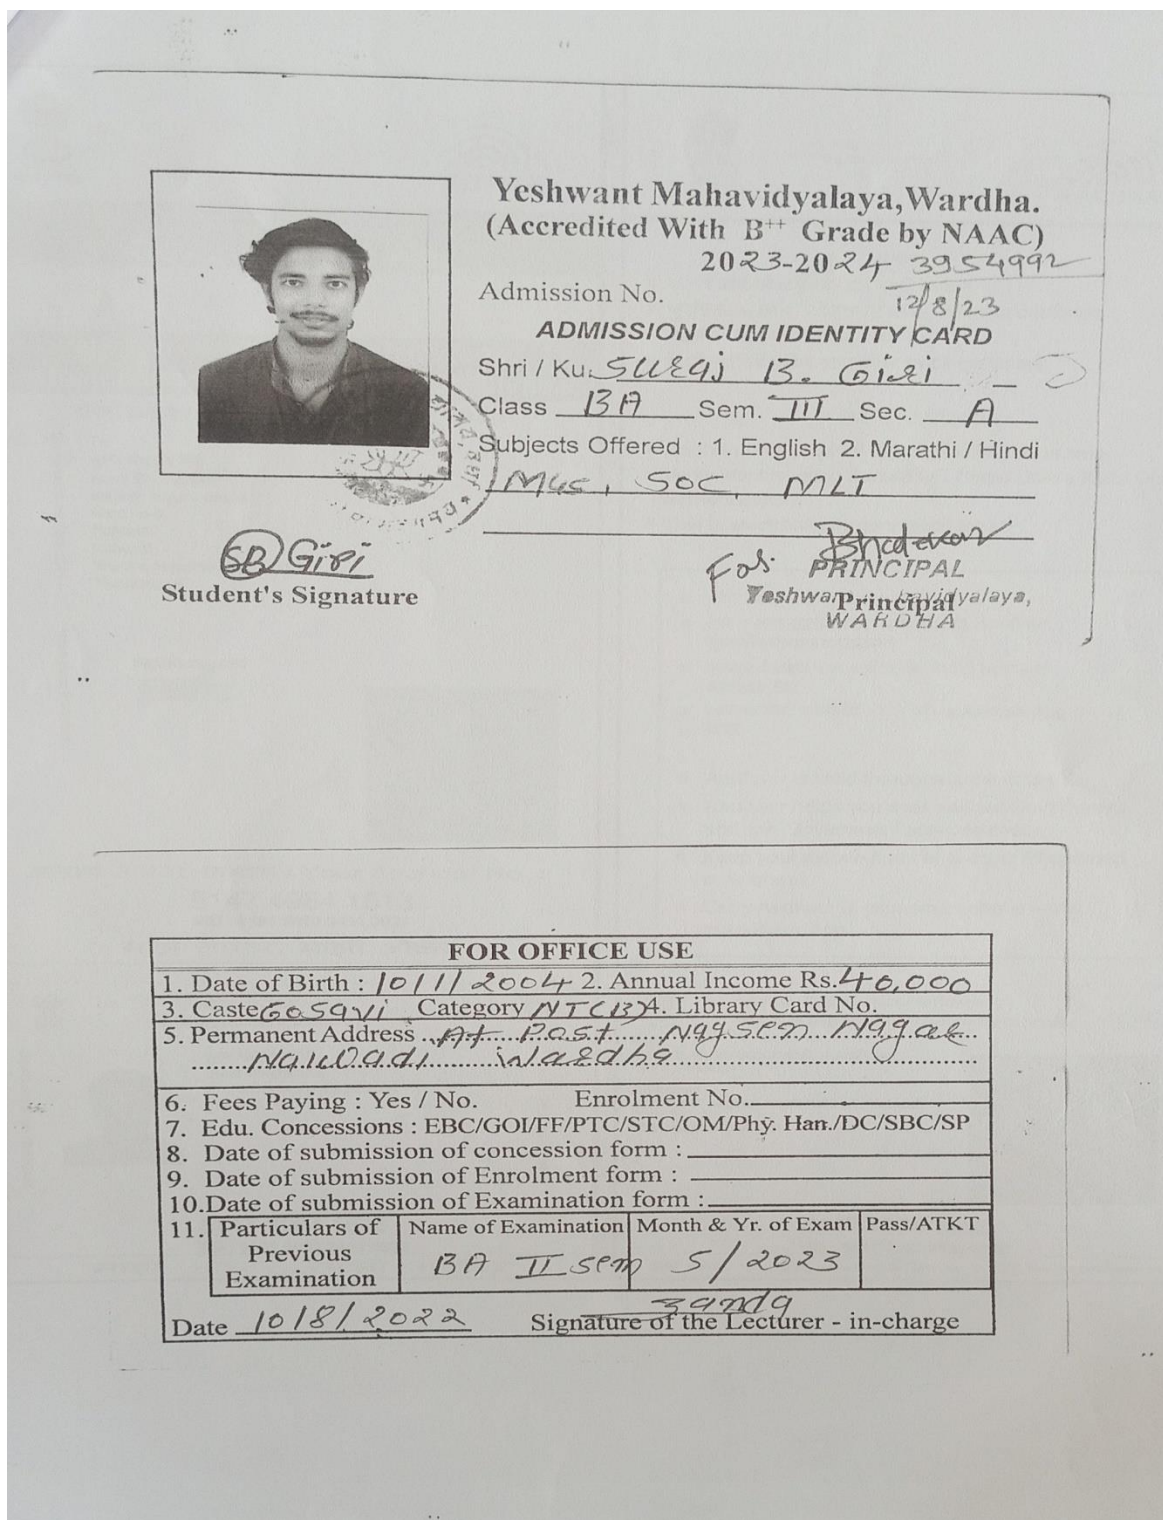 Yeshwant Mahavidyalaya,Wardha.
(Accredited With B++ Grade by NAAC)
2023-2024 3954992
Admission No. 12/8/23
ADMISSION CUM IDENTITY CARD
Shri / Ku. Suraj B. Giri
Class BA Sem. III Sec. A
Subjects Offered : 1. English 2. Marathi / Hindi
Mus, SOC, MLT
SB Giri
Student's Signature
For
PRINCIPAL
Principal
WARDHA
FOR OFFICE USE
1. Date of Birth : 10/1/2004 2. Annual Income Rs. 40,000
3. Caste Gosavi Category NT(B) 4. Library Card No.
5. Permanent Address At Post Nagsen Nagar
Nalwadi Wardha
6. Fees Paying : Yes / No. Enrolment No.
7. Edu. Concessions : EBC/GOI/FF/PTC/STC/OM/Phy. Han./DC/SBC/SP
8. Date of submission of concession form :
9. Date of submission of Enrolment form :
10.Date of submission of Examination form :
11. Particulars of Previous Examination Name of Examination Month & Yr. of Exam Pass/ATKT
BA II sem 5/2023
Date 10/8/2022 Signature of the Lecturer - in-charge